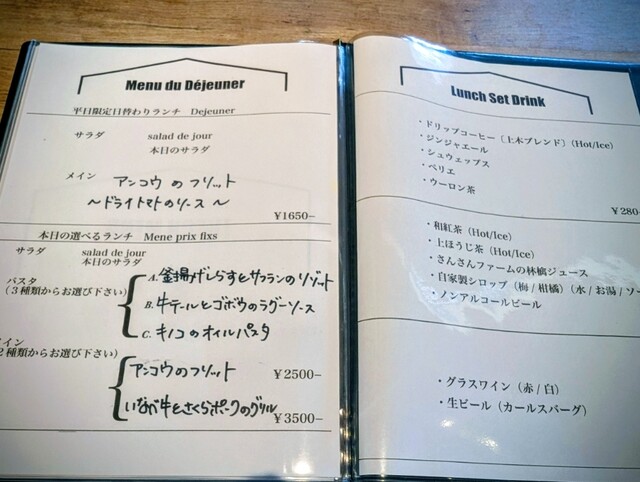 Menu du Déjeuner
平日限定日替わりランチ Dejeuner
サラダ salad de jour
本日のサラダ
メイン アンコウ の フリット
～ドライトマトのソース～
¥1650-
本日の選べるランチ Mene prix fixs
サラダ salad de jour
本日のサラダ
パスタ
(3種類からお選び下さい)
A. 釜揚げしらすとサフランのリゾット
B. 牛テールとゴボウのラグーソース
C. キノコのオイルパスタ
イン
2種類からお選び下さい)
アンコウのフリット ¥2500-
いなが牛とさくらポークのグリル
¥3500-
Lunch Set Drink
・ドリップコーヒー〔上木ブレンド〕(Hot/Ice)
・ジンジャエール
・シュウェップス
・ペリエ
・ウーロン茶
¥280-
・和紅茶 (Hot/Ice)
・上ほうじ茶 (Hot/Ice)
・さんさんファームの林檎ジュース
・自家製シロップ (梅 / 柑橘) (水 / お湯 / ソー
・ノンアルコールビール
・グラスワイン (赤 / 白)
・生ビール (カールスバーグ)